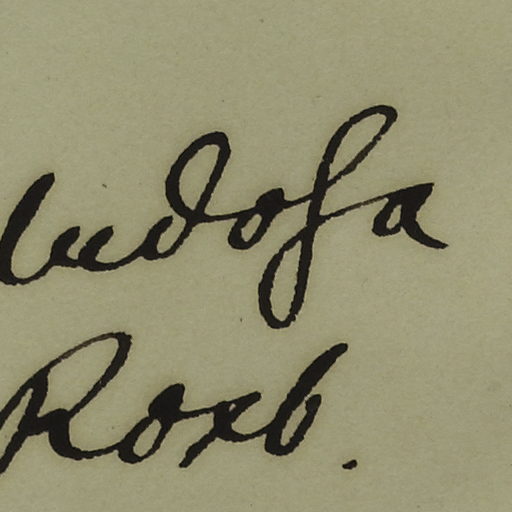 ludosa
Roxb.